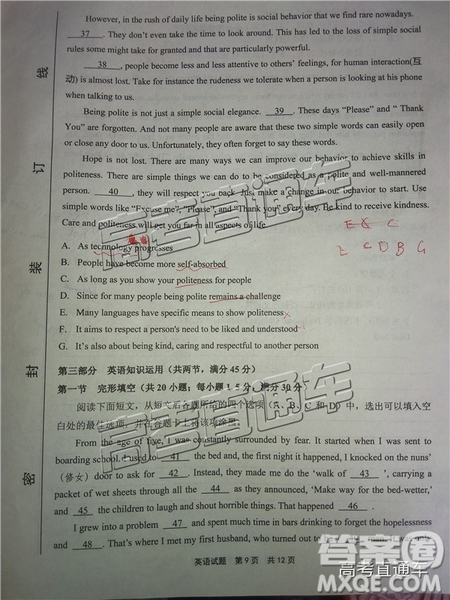 However, in the rush of daily life being polite is social behavior that we find rare nowadays.
37 . They don't even take the time to look around. This has led to the loss of simple social
rules some might take for granted and that are particularly powerful.
38 , people become less and less attentive to others' feelings, for human interaction(互
动) is almost lost. Take for instance the rudeness we tolerate when a person is looking at his phone
when talking to us.
Being polite is not just a simple social elegance. 39 . These days "Please" and " Thank
You" are forgotten. And not many people are aware that these two simple words can easily open
or close any door to us. Unfortunately, they often forget to say these words.
Hope is not lost. There are many ways we can improve our behavior to achieve skills in
politeness. There are simple things we can do to be considered as a polite and well-mannered
person. 40 , they will respect you back. Just make a change in our behavior to start. Use
simple words like "Excuse me", "Please", and "Thank you" every day. Be kind to receive kindness.
Care and politeness will get you far in all aspects of life.
E C
E C D B G
A. As technology progresses
B. People have become more self-absorbed
C. As long as you show your politeness for people
D. Since for many people being polite remains a challenge
E. Many languages have specific means to show politeness
F. It aims to respect a person's need to be liked and understood
G. It's also about being kind, caring and respectful to another person
第三部分 英语知识运用（共两节，满分 45 分）
第一节 完形填空（共 20 小题；每小题 1.5 分，满分 30 分）
阅读下面短文，从短文后各题所给的四个选项（A、B、C 和 D）中，选出可以填入空
白处的最佳选项，并在答题卡上将该项涂黑。
From the age of five, I was constantly surrounded by fear. It started when I was sent to
boarding school. I used to 41 the bed and, the first night it happened, I knocked on the nuns'
（修女）door to ask for 42 . Instead, they made me do the 'walk of 43 ', carrying a
packet of wet sheets through all the 44 as they announced, 'Make way for the bed-wetter,'
and 45 the children to laugh and shout horrible things. That happened 46 .
I grew into a problem 47 and spent much time in bars drinking to forget the hopelessness
and 48 . That's where I met my first husband, who turned out to
英语试题 第 9 页 共 12 页
线
订
装
封
密
高考直通车
高考直通车
高考直通车
答案圈
MXQE.COM